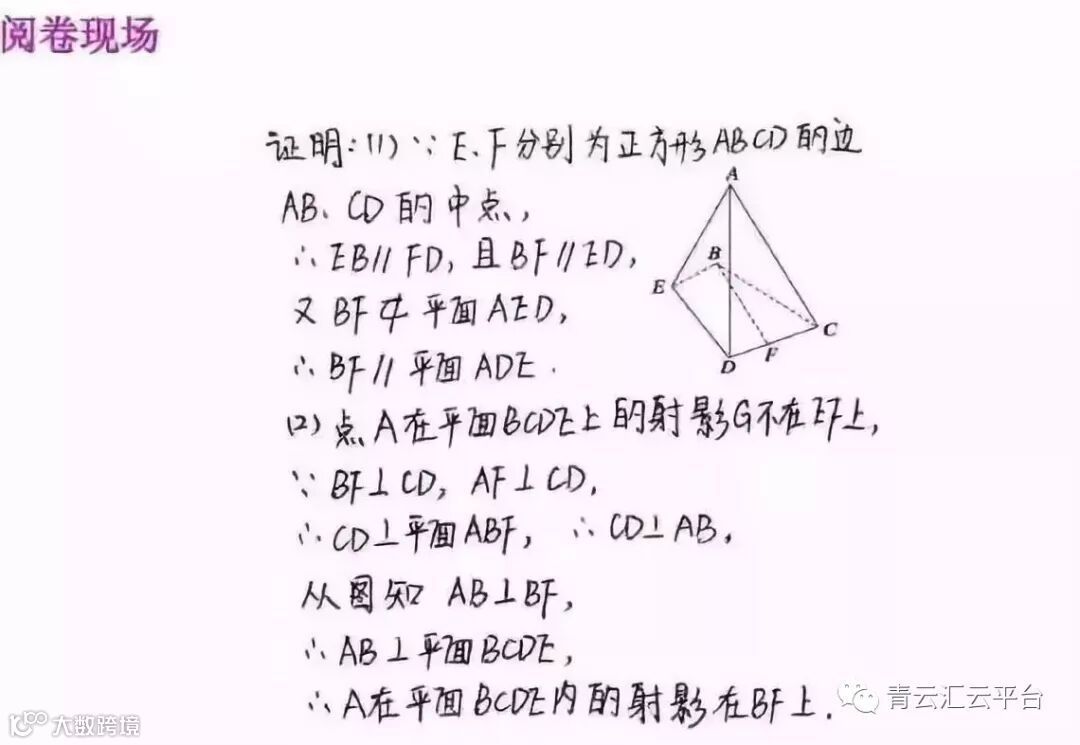 阅卷现场
证明:(1)∵E、F分别为正方形ABCD的边
AB、CD的中点,
∴EB∥FD,且BF∥ED,
又BF⊄平面AED,
∴BF∥平面ADE.
A
B
E
C
D
F
(2)点A在平面BCDE上的射影G不在EF上,
∵BF⊥CD,AF⊥CD,
∴CD⊥平面ABF, ∴CD⊥AB,
从图知 AB⊥BF,
∴AB⊥平面BCDE,
∴A在平面BCDE内的射影在BF上.
青云汇云平台
大数跨境